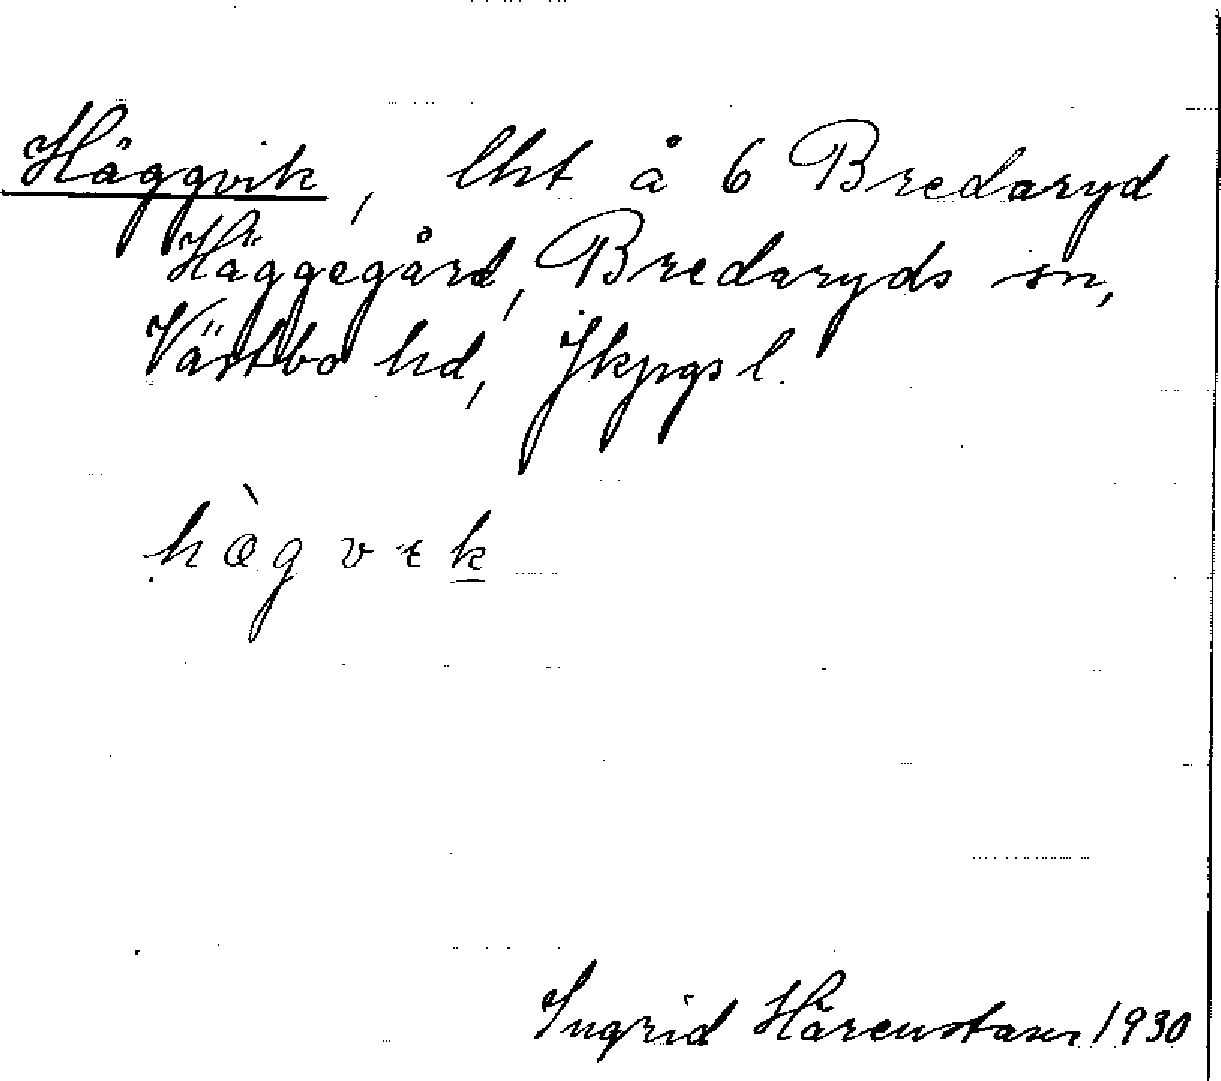 Häggvik, lht å 6 Bredaryd
Häggegård, Bredaryds sn,
Västbo hd, Jkpgs l.
hàgvɩk
Ingrid Härenstam 1930